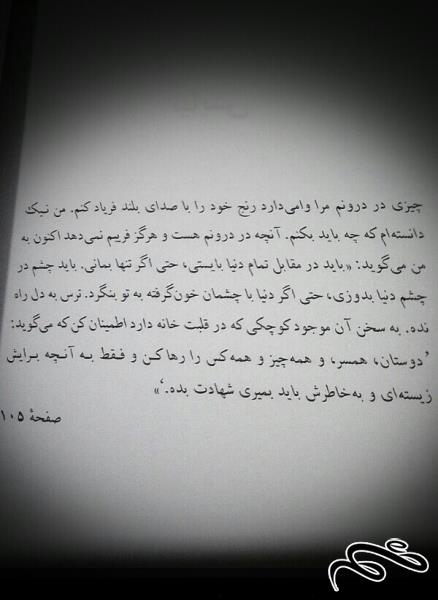 چیزی در درونم مرا وامی‌دارد رنج خود را با صدای بلند فریاد کنم. من نیک
دانسته‌ام که چه باید بکنم. آنچه در درونم هست و هرگز فریبم نمی‌دهد اکنون به
من می‌گوید: «باید در مقابل تمام دنیا بایستی، حتی اگر تنها بمانی. باید چشم در
چشم دنیا بدوزی، حتی اگر دنیا با چشمان خون‌گرفته به تو بنگرد. ترس به دل راه
نده. به سخن آن موجود کوچکی که در قلبت خانه دارد اطمینان کن که می‌گوید:
'دوستان، همسر، و همه‌چیز و همه‌کس را رها کن و فقط به آنچه برایش
زیسته‌ای و به‌خاطرش باید بمیری شهادت بده.'»
صفحهٔ ۱۰۵